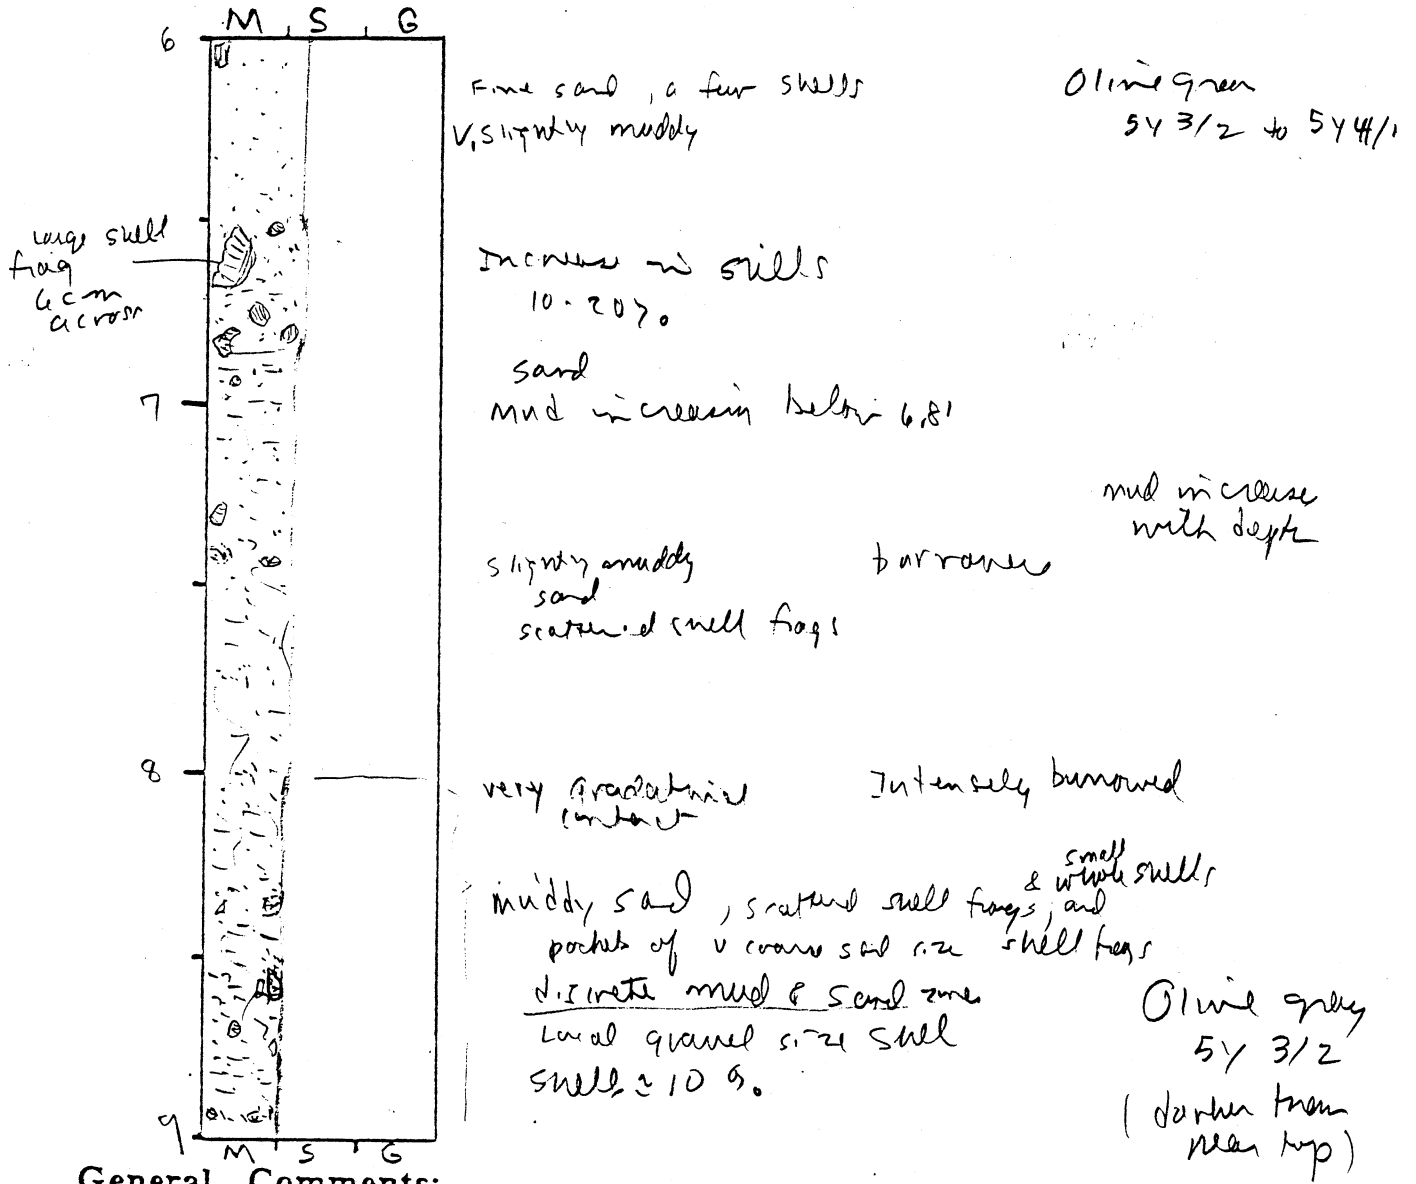 M S G
6
Fine sand, a few shells
V. slightly muddy
Olive gray
5Y 3/2 to 5Y 4/1
large shell
frag
6 cm
across
Increase in shells
10-20%
sand
7
mud increasin below 6.8'
mud increase
with depth
slightly muddy
sand
scattered shell frags
burrowed
8
very gradational
contact
Intensely burrowed
muddy sand, scattered shell frags, & small whole shells and
pockets of v coarse sand size shell frags
discrete mud & sand zones
Local gravel size shell
shells ≈ 10%
Olive gray
5Y 3/2
(darker than
near top)
9
M S G
General Comments: